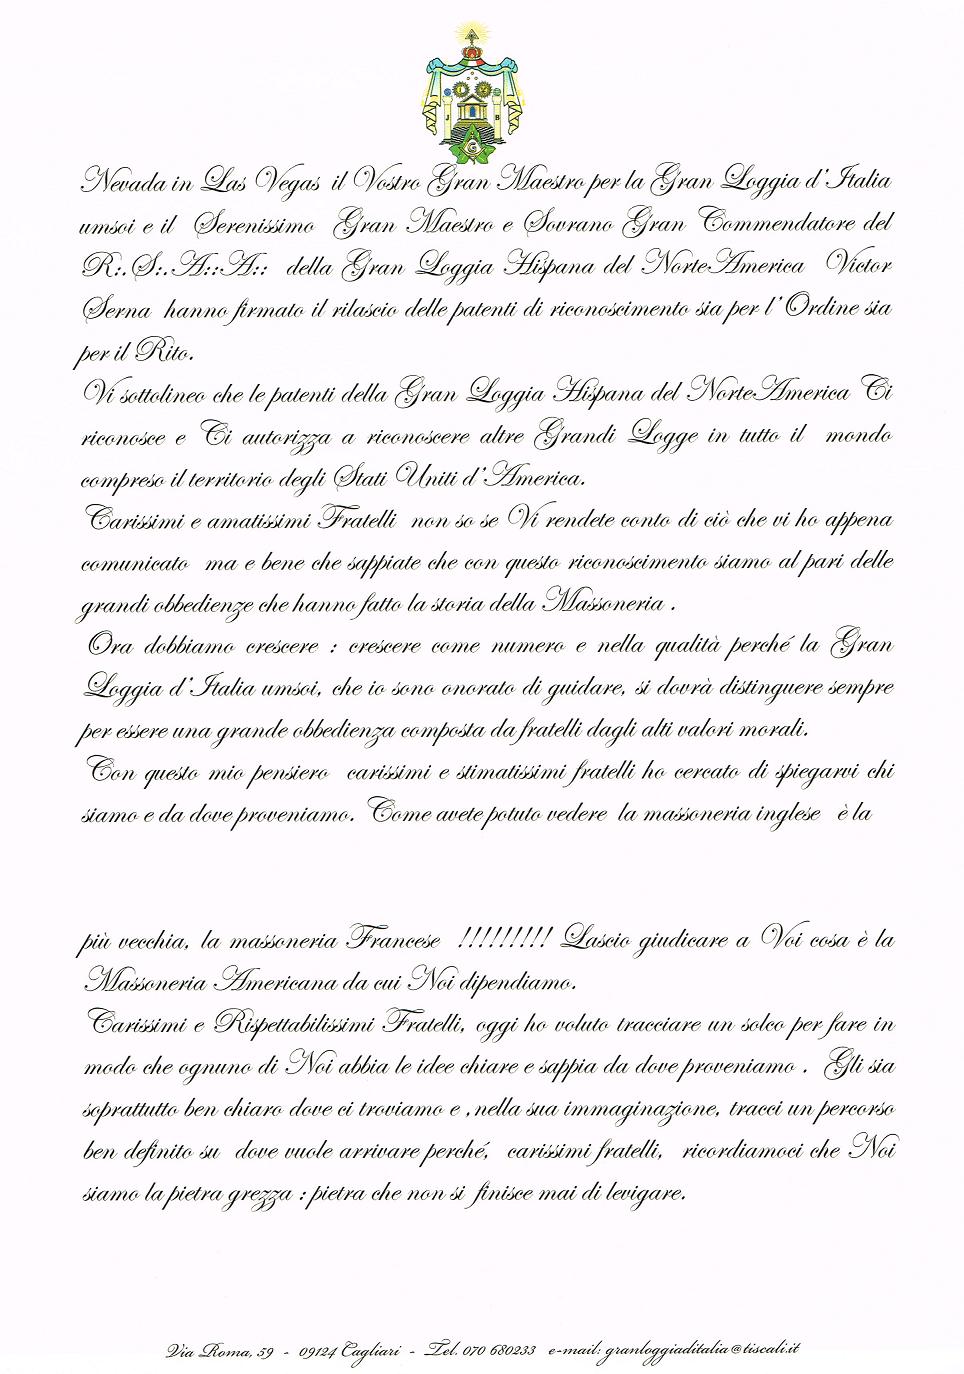 J B
G
Nevada in Las Vegas il Vostro Gran Maestro per la Gran Loggia d'Italia
umsoi e il Serenissimo Gran Maestro e Sovrano Gran Commendatore del
R:.S:.A::A:: della Gran Loggia Hispana del NorteAmerica Victor
Serna hanno firmato il rilascio delle patenti di riconoscimento sia per l' Ordine sia
per il Rito.
Vi sottolineo che le patenti della Gran Loggia Hispana del NorteAmerica Ci
riconosce e Ci autorizza a riconoscere altre Grandi Logge in tutto il mondo
compreso il territorio degli Stati Uniti d'America.
Carissimi e amatissimi Fratelli non so se Vi rendete conto di ciò che vi ho appena
comunicato ma e bene che sappiate che con questo riconoscimento siamo al pari delle
grandi obbedienze che hanno fatto la storia della Massoneria .
Ora dobbiamo crescere : crescere come numero e nella qualità perché la Gran
Loggia d'Italia umsoi, che io sono onorato di guidare, si dovrà distinguere sempre
per essere una grande obbedienza composta da fratelli dagli alti valori morali.
Con questo mio pensiero carissimi e stimatissimi fratelli ho cercato di spiegarvi chi
siamo e da dove proveniamo. Come avete potuto vedere la massoneria inglese è la
più vecchia, la massoneria Francese !!!!!!!!! Lascio giudicare a Voi cosa è la
Massoneria Americana da cui Noi dipendiamo.
Carissimi e Rispettabilissimi Fratelli, oggi ho voluto tracciare un solco per fare in
modo che ognuno di Noi abbia le idee chiare e sappia da dove proveniamo . Gli sia
soprattutto ben chiaro dove ci troviamo e ,nella sua immaginazione, tracci un percorso
ben definito su dove vuole arrivare perché, carissimi fratelli, ricordiamoci che Noi
siamo la pietra grezza : pietra che non si finisce mai di levigare.
Via Roma, 59 - 09124 Cagliari - Tel. 070 680233 e-mail: granloggiaditalia@tiscali.it